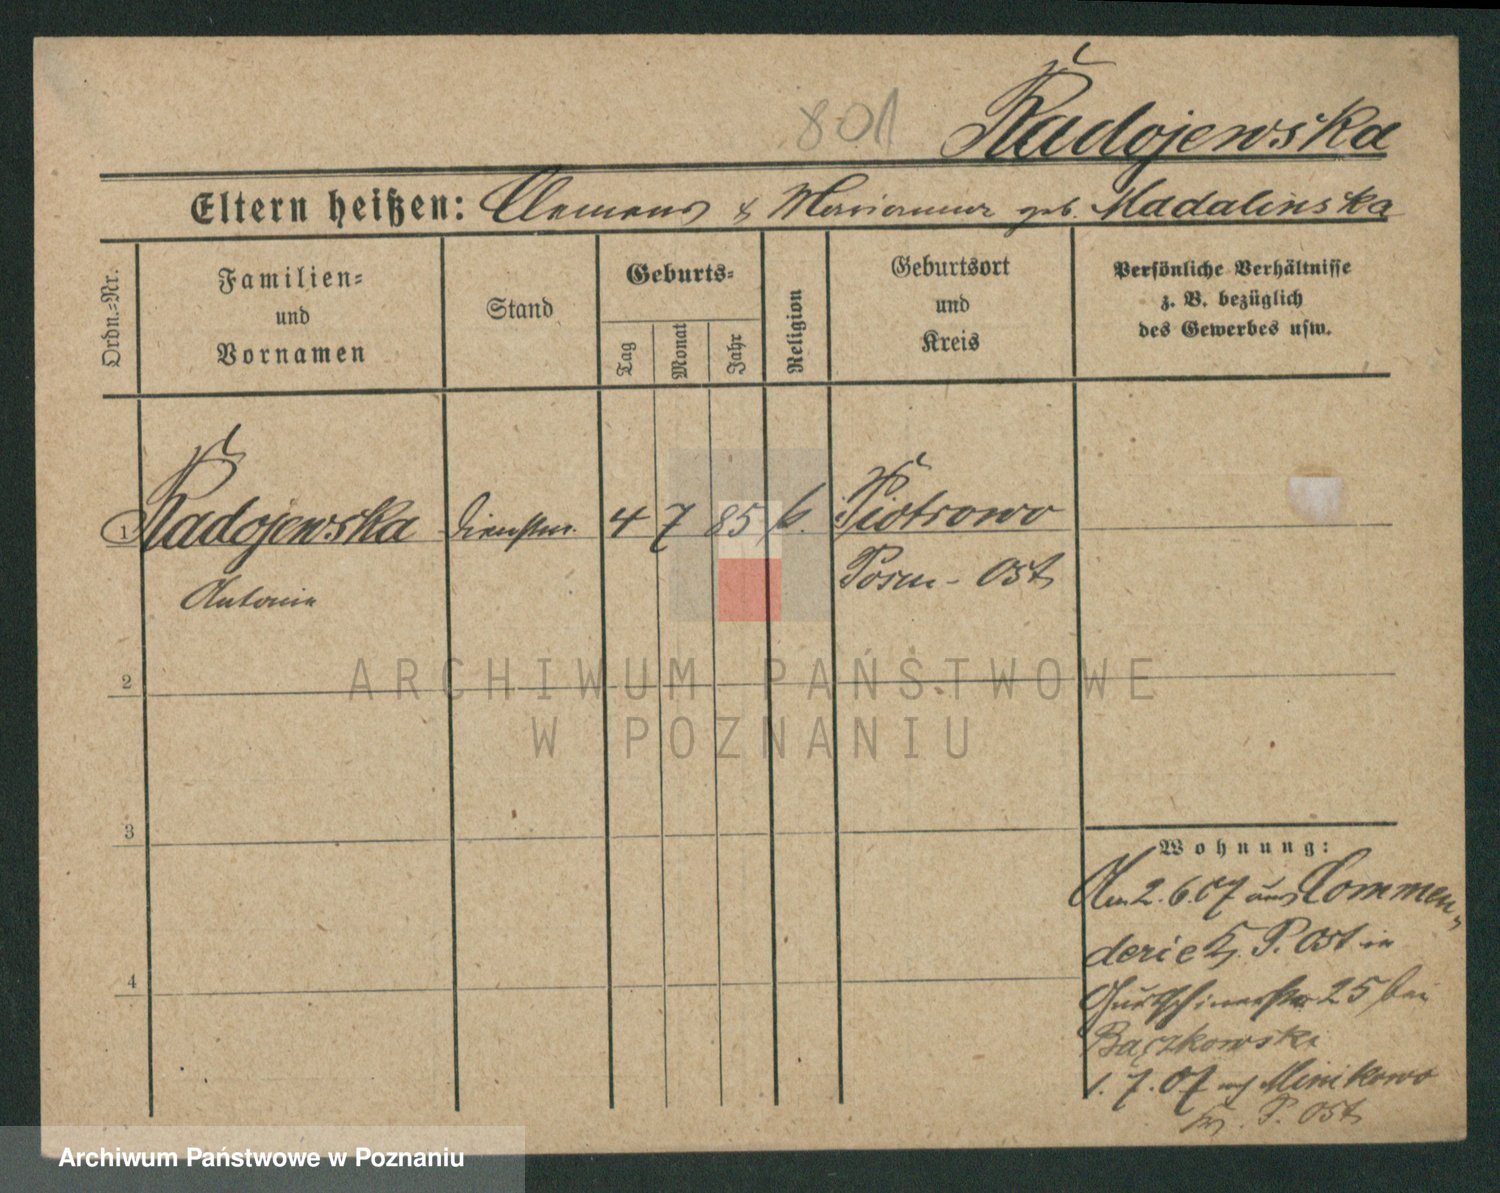 801 Radojewska
Eltern heißen: Clemens & Marianna geb. Madalinska
Ordn.=Nr.
Familien=
und
Vornamen
Stand
Geburts=
Tag
Monat
Jahr
Religion
Geburtsort
und
Kreis
Persönliche Verhältnisse
z. B. bezüglich
des Gewerbes usw.
1 Radojewska 4 7 85 k. Piotrowo
Antonie Posen - Ost
2
3
4
Wohnung:
Am 2.6.07 aus Commen
derie Kr. P. Ost in
25 bei
Bączkowski
1.7.07 Minikowo
Kr. P. Ost
ARCHIWUM PAŃSTWOWE
W POZNANIU
Archiwum Państwowe w Poznaniu